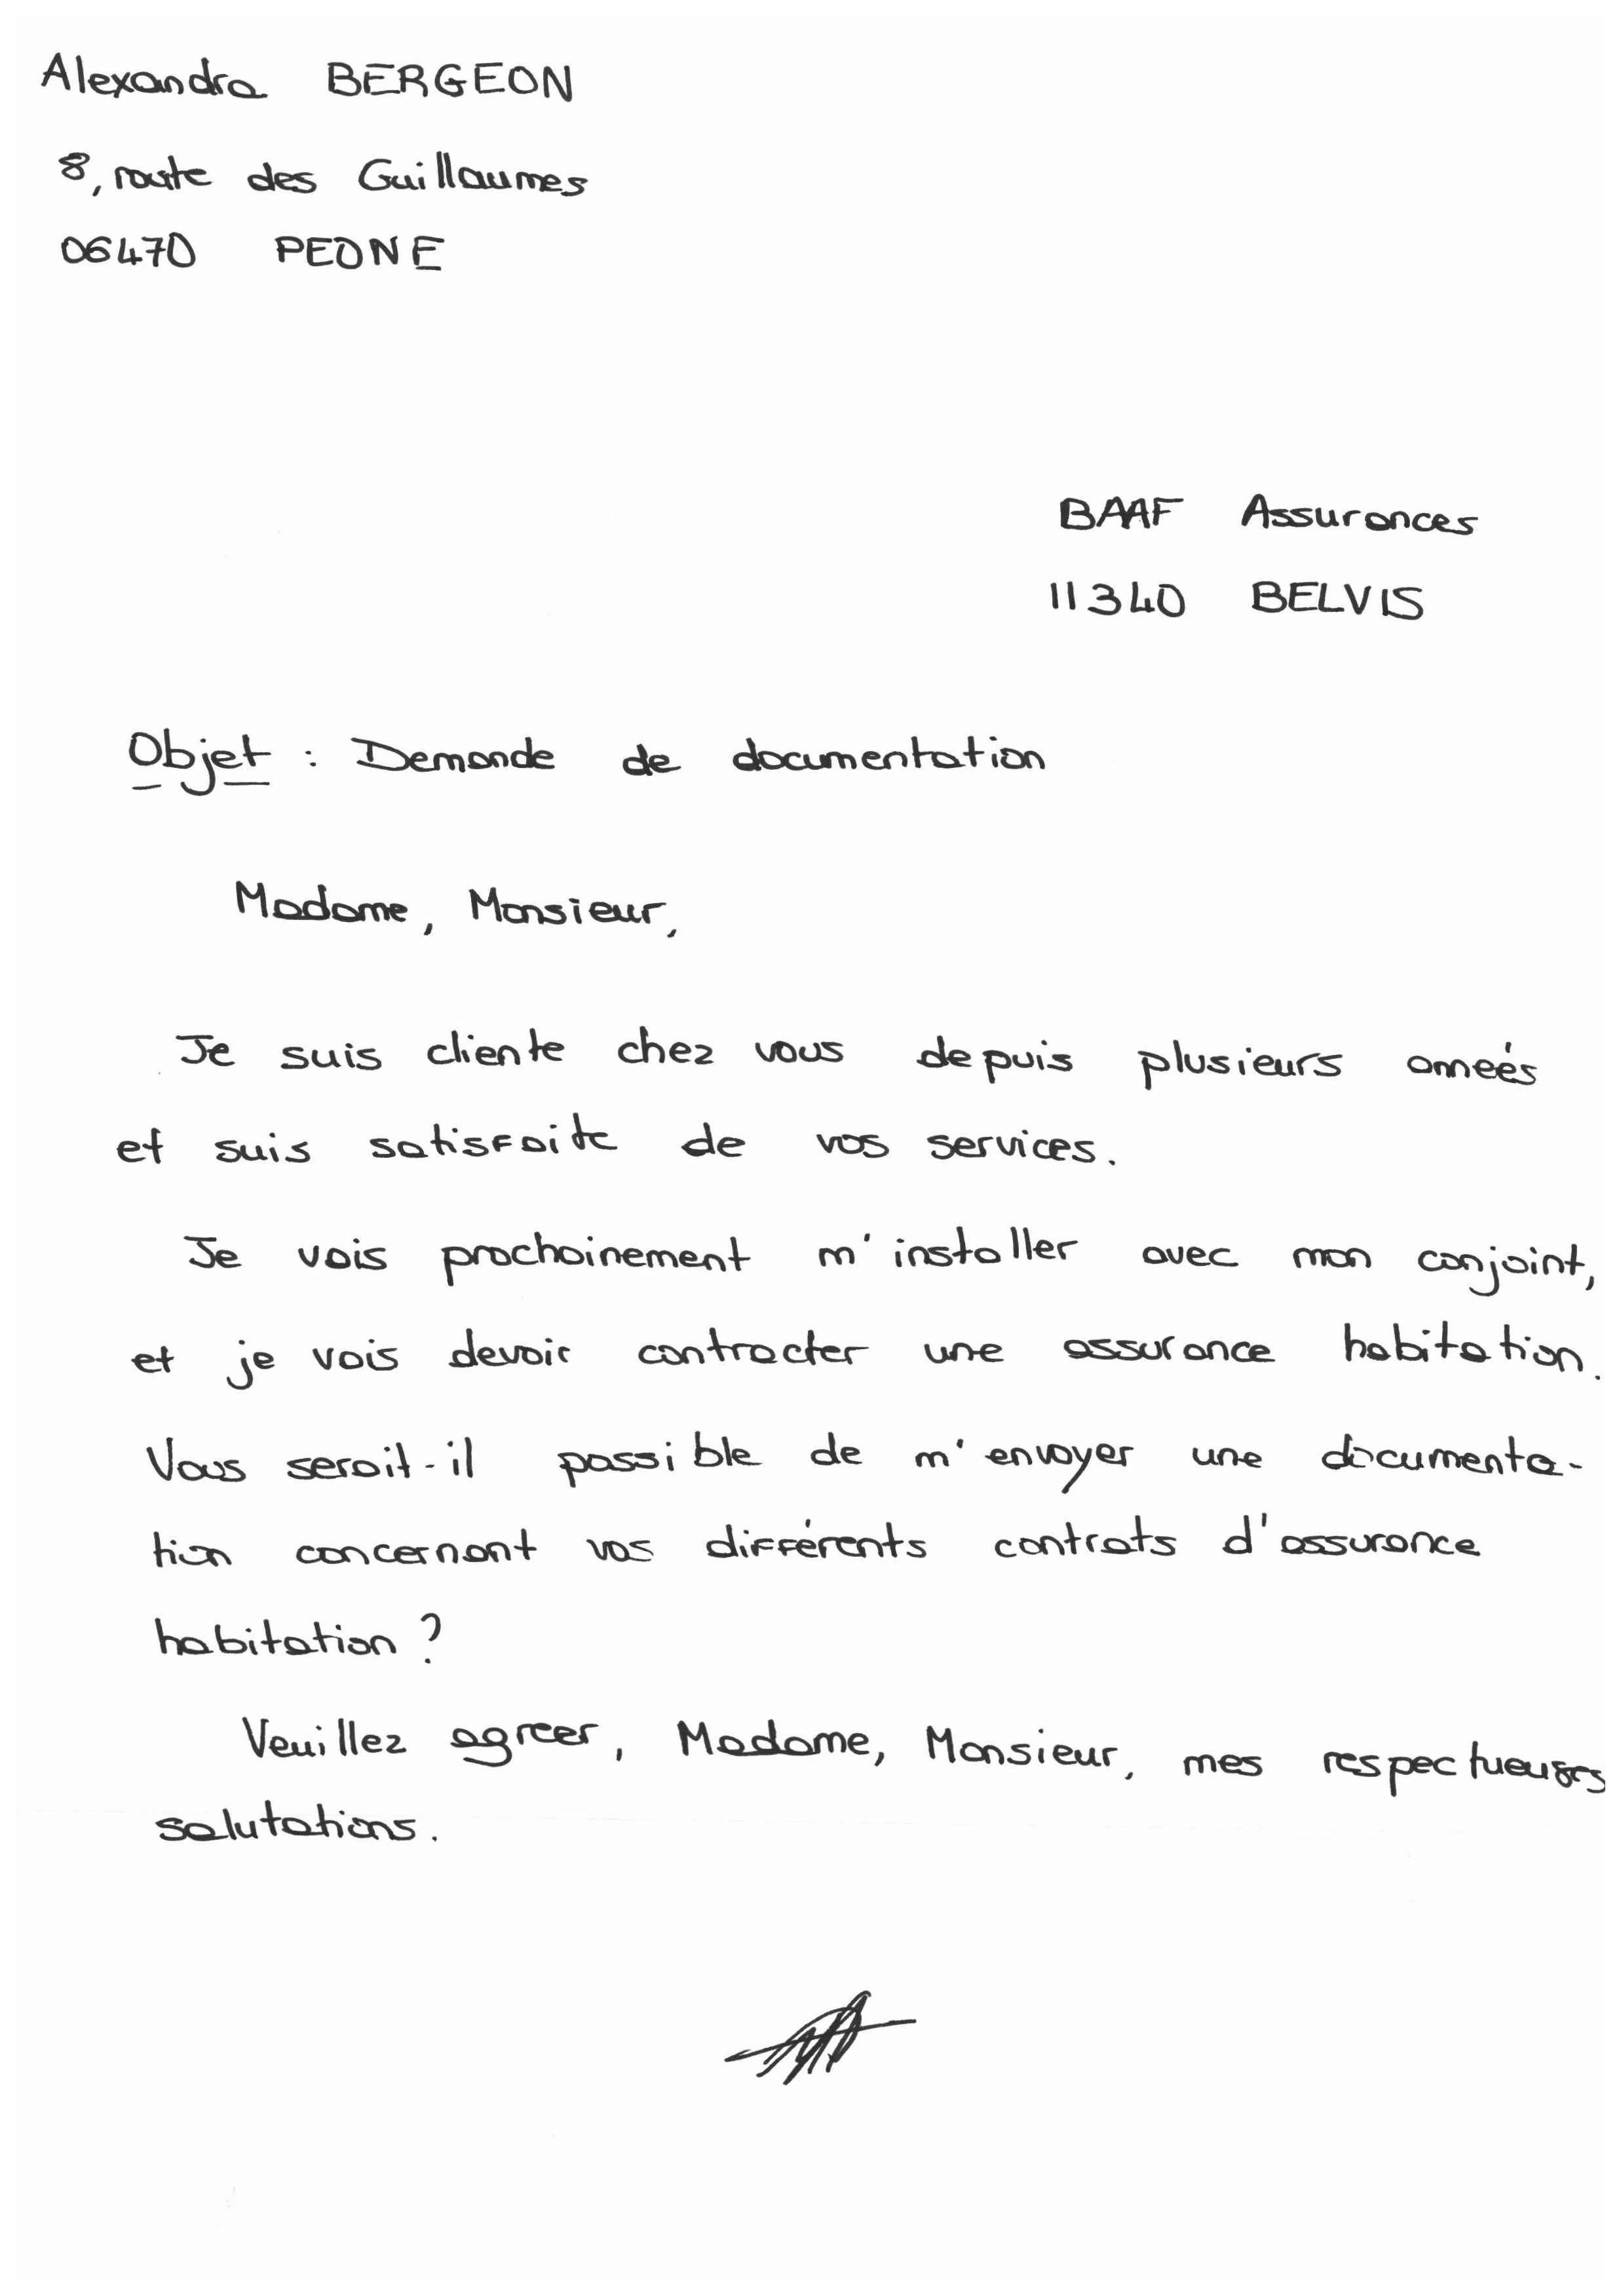 Alexandra BERGEON
8, route des Guillaumes
06470 PEONE
BAAF Assurances
11340 BELVIS
Objet : Demande de documentation
Madame, Monsieur,
Je suis cliente chez vous depuis plusieurs années
et suis satisfaite de vos services.
Je vais prochainement m'installer avec mon conjoint,
et je vais devoir contracter une assurance habitation.
Vous serait-il possible de m'envoyer une documenta-
tion concernant vos différents contrats d'assurance
habitation ?
Veuillez agreer, Madame, Monsieur, mes respectueuses
salutations.